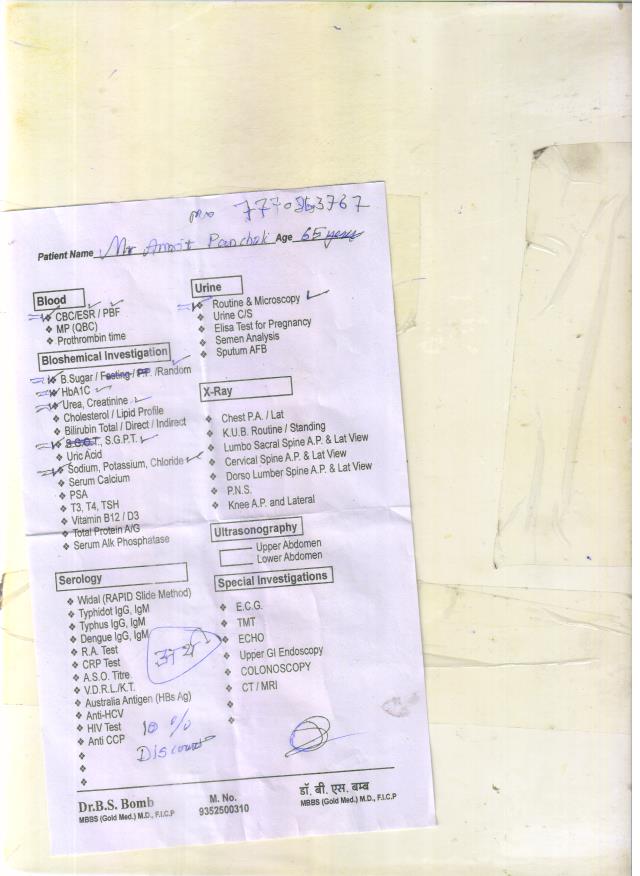 Patient Name Mr Age 65 years
Blood
❖ CBC/ESR / PBF
❖ MP (QBC)
❖ Prothrombin time
Bioshemical Investigation
❖ B.Sugar / Fasting / P.P. /Random
❖ HbA1C
❖ Urea, Creatinine
❖ Cholesterol / Lipid Profile
❖ Bilirubin Total / Direct / Indirect
❖ S.G.O.T., S.G.P.T.
❖ Uric Acid
❖ Sodium, Potassium, Chloride
❖ Serum Calcium
❖ PSA
❖ T3, T4, TSH
❖ Vitamin B12 / D3
❖ Total Protein A/G
❖ Serum Alk Phosphatase
Serology
❖ Widal (RAPID Slide Method)
❖ Typhidot IgG, IgM
❖ Typhus IgG, IgM
❖ Dengue IgG, IgM
❖ R.A. Test
❖ CRP Test
❖ A.S.O. Titre
❖ V.D.R.L./K.T.
❖ Australia Antigen (HBs Ag)
❖ Anti-HCV
❖ HIV Test
❖ Anti CCP
10 %
Discount
Urine
❖ Routine & Microscopy
❖ Urine C/S
❖ Elisa Test for Pregnancy
❖ Semen Analysis
❖ Sputum AFB
X-Ray
❖ Chest P.A. / Lat
❖ K.U.B. Routine / Standing
❖ Lumbo Sacral Spine A.P. & Lat View
❖ Cervical Spine A.P. & Lat View
❖ Dorso Lumber Spine A.P. & Lat View
❖ P.N.S.
❖ Knee A.P. and Lateral
Ultrasonography
Upper Abdomen
Lower Abdomen
Special Investigations
❖ E.C.G.
❖ TMT
❖ ECHO
❖ Upper GI Endoscopy
❖ COLONOSCOPY
❖ CT / MRI
Dr.B.S. Bomb
MBBS (Gold Med.) M.D., F.I.C.P
M. No.
9352500310
डॉ. बी. एस. बम्ब
MBBS (Gold Med.) M.D., F.I.C.P